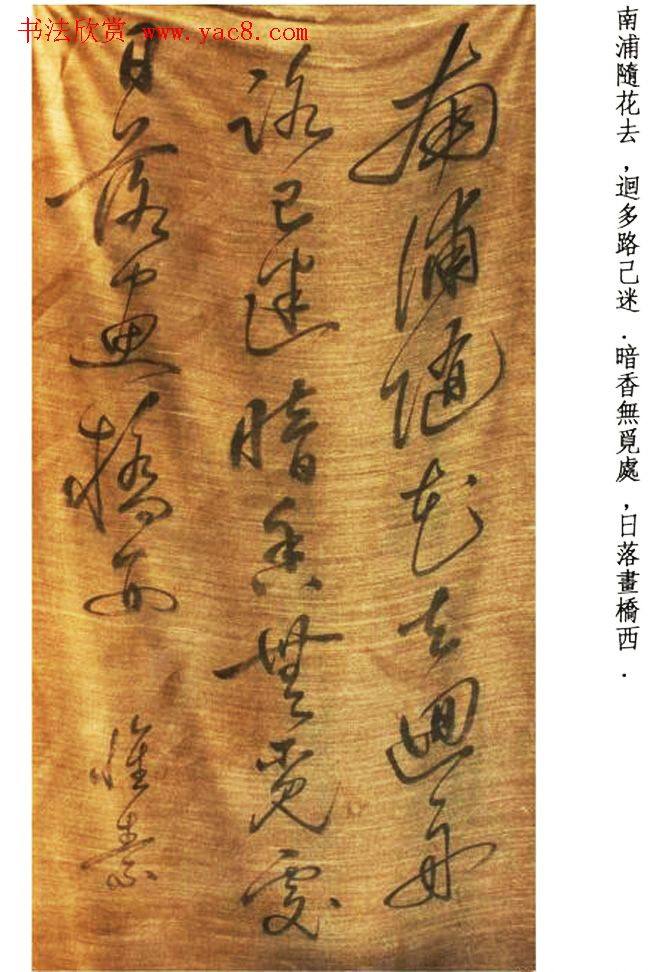 书法欣赏 www.yac8.com
南浦隨花去，迴多路己迷．暗香無覓處，日落畫橋西．
南浦隨花去迴舟
路已迷暗香無覓處
日落畫橋西